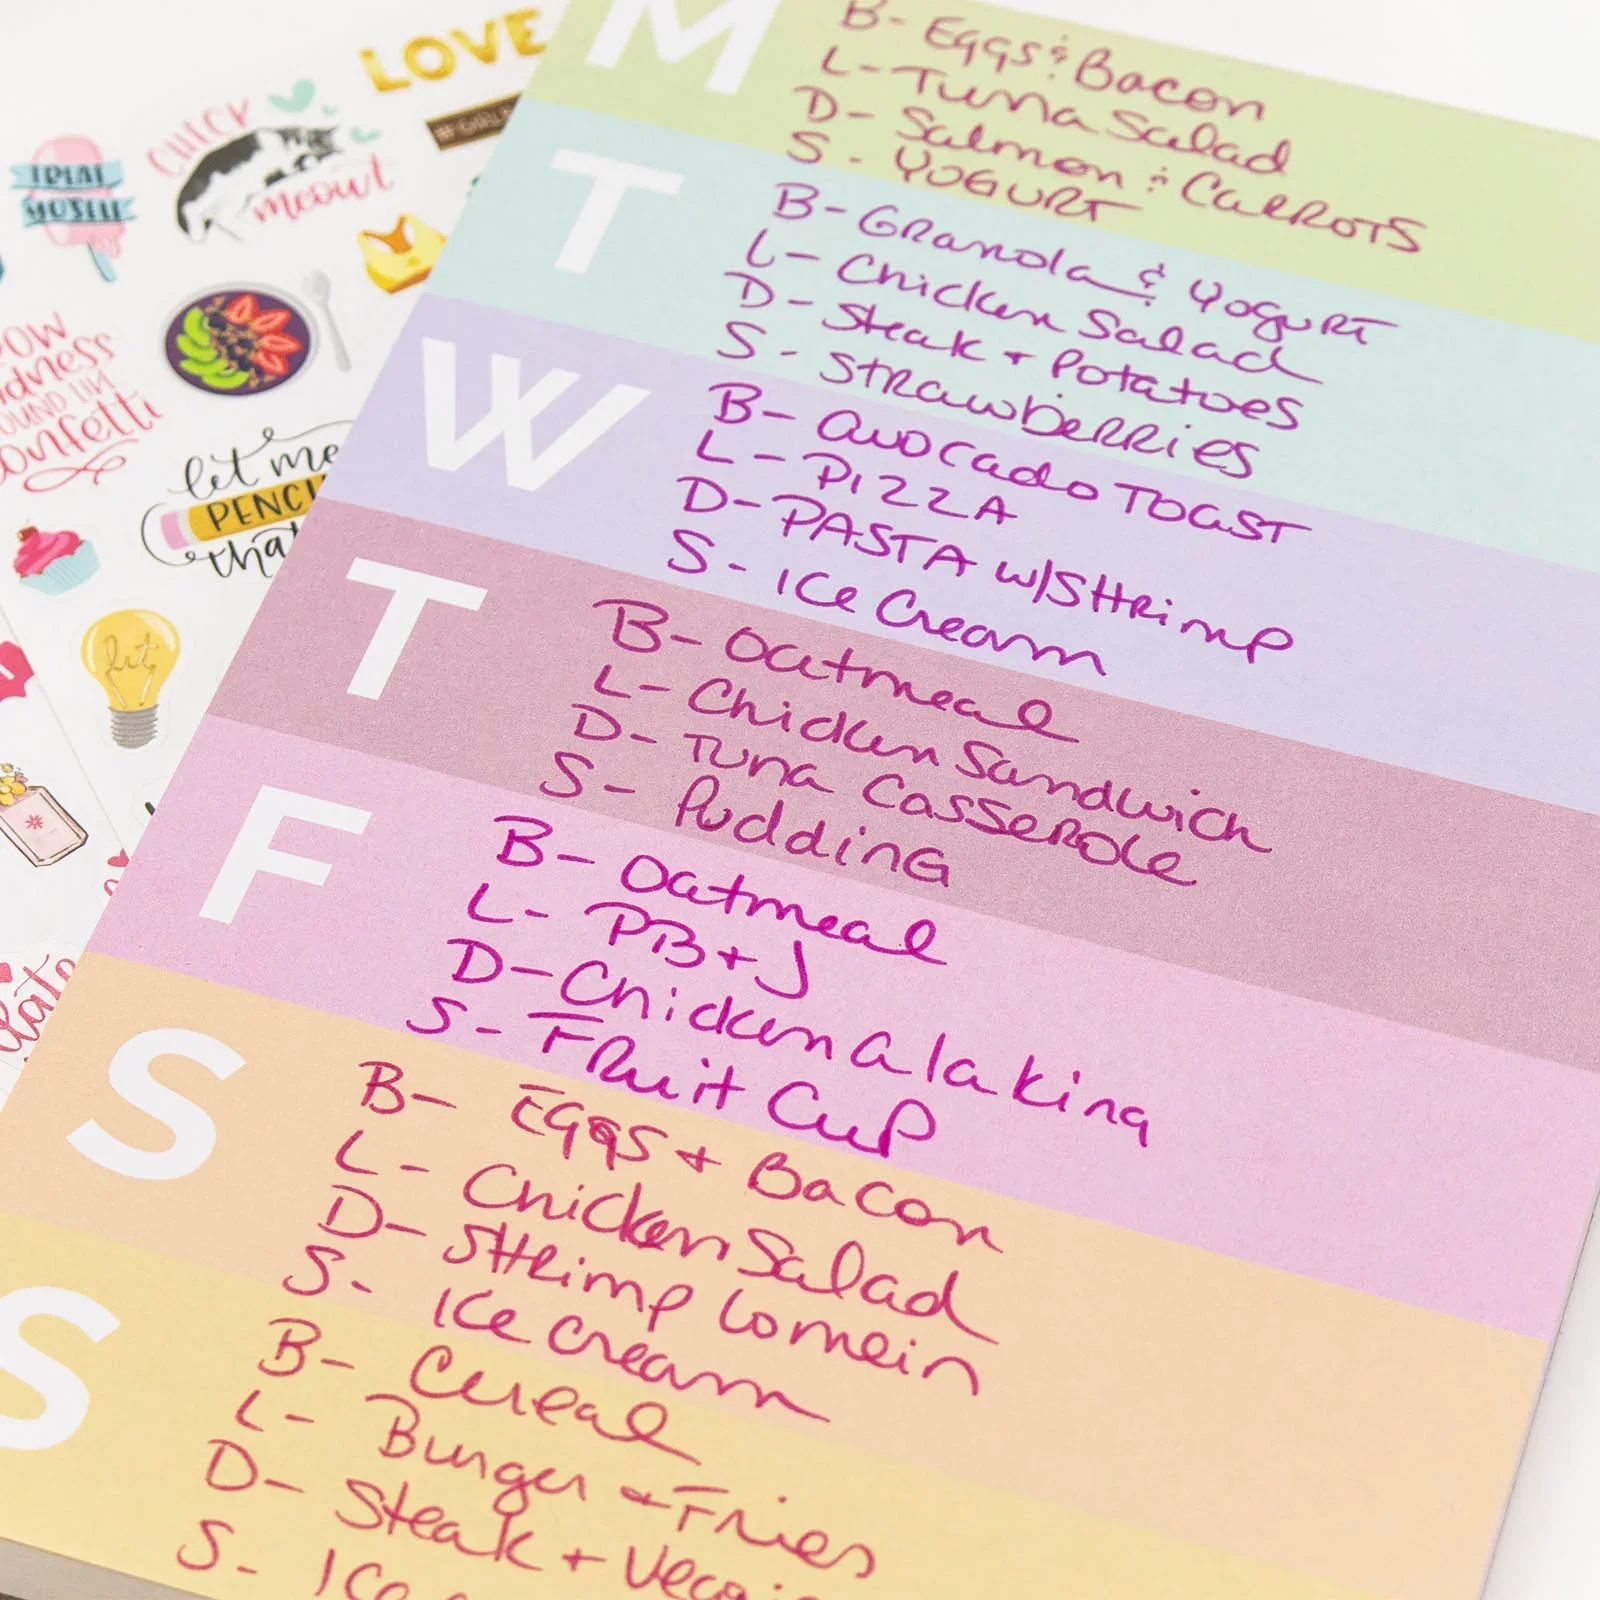 LOVE
#GIRL
CHECK
meowt
TOTAL
MUSELL
let me
PENCI
that
confetti
lit
M
B- EGGS & Bacon
L- Tuna Salad
D- Salmon & CARROTS
S- YOGURT
T
B- GRanola & YogURT
L- Chicken Salad
D- Steak + Potatoes
S- STRAWBERRIES
W
B- avocado TOAST
L- PIZZA
D- PASTA W/SHRimp
S- ICe Cream
T
B- Oatmeal
L- Chicken Sandwich
D- Tuna CASSEROLE
S- PuddinG
F
B- Oatmeal
L- PB+J
D- Chicken a la king
S- FRuit Cup
S
B- EGGS + Bacon
L- Chicken Salad
D- SHRimp Lomein
S- ICe Cream
S
B- Cereal
L- Burger + Fries
D- Steak + Veggi
S- ICe